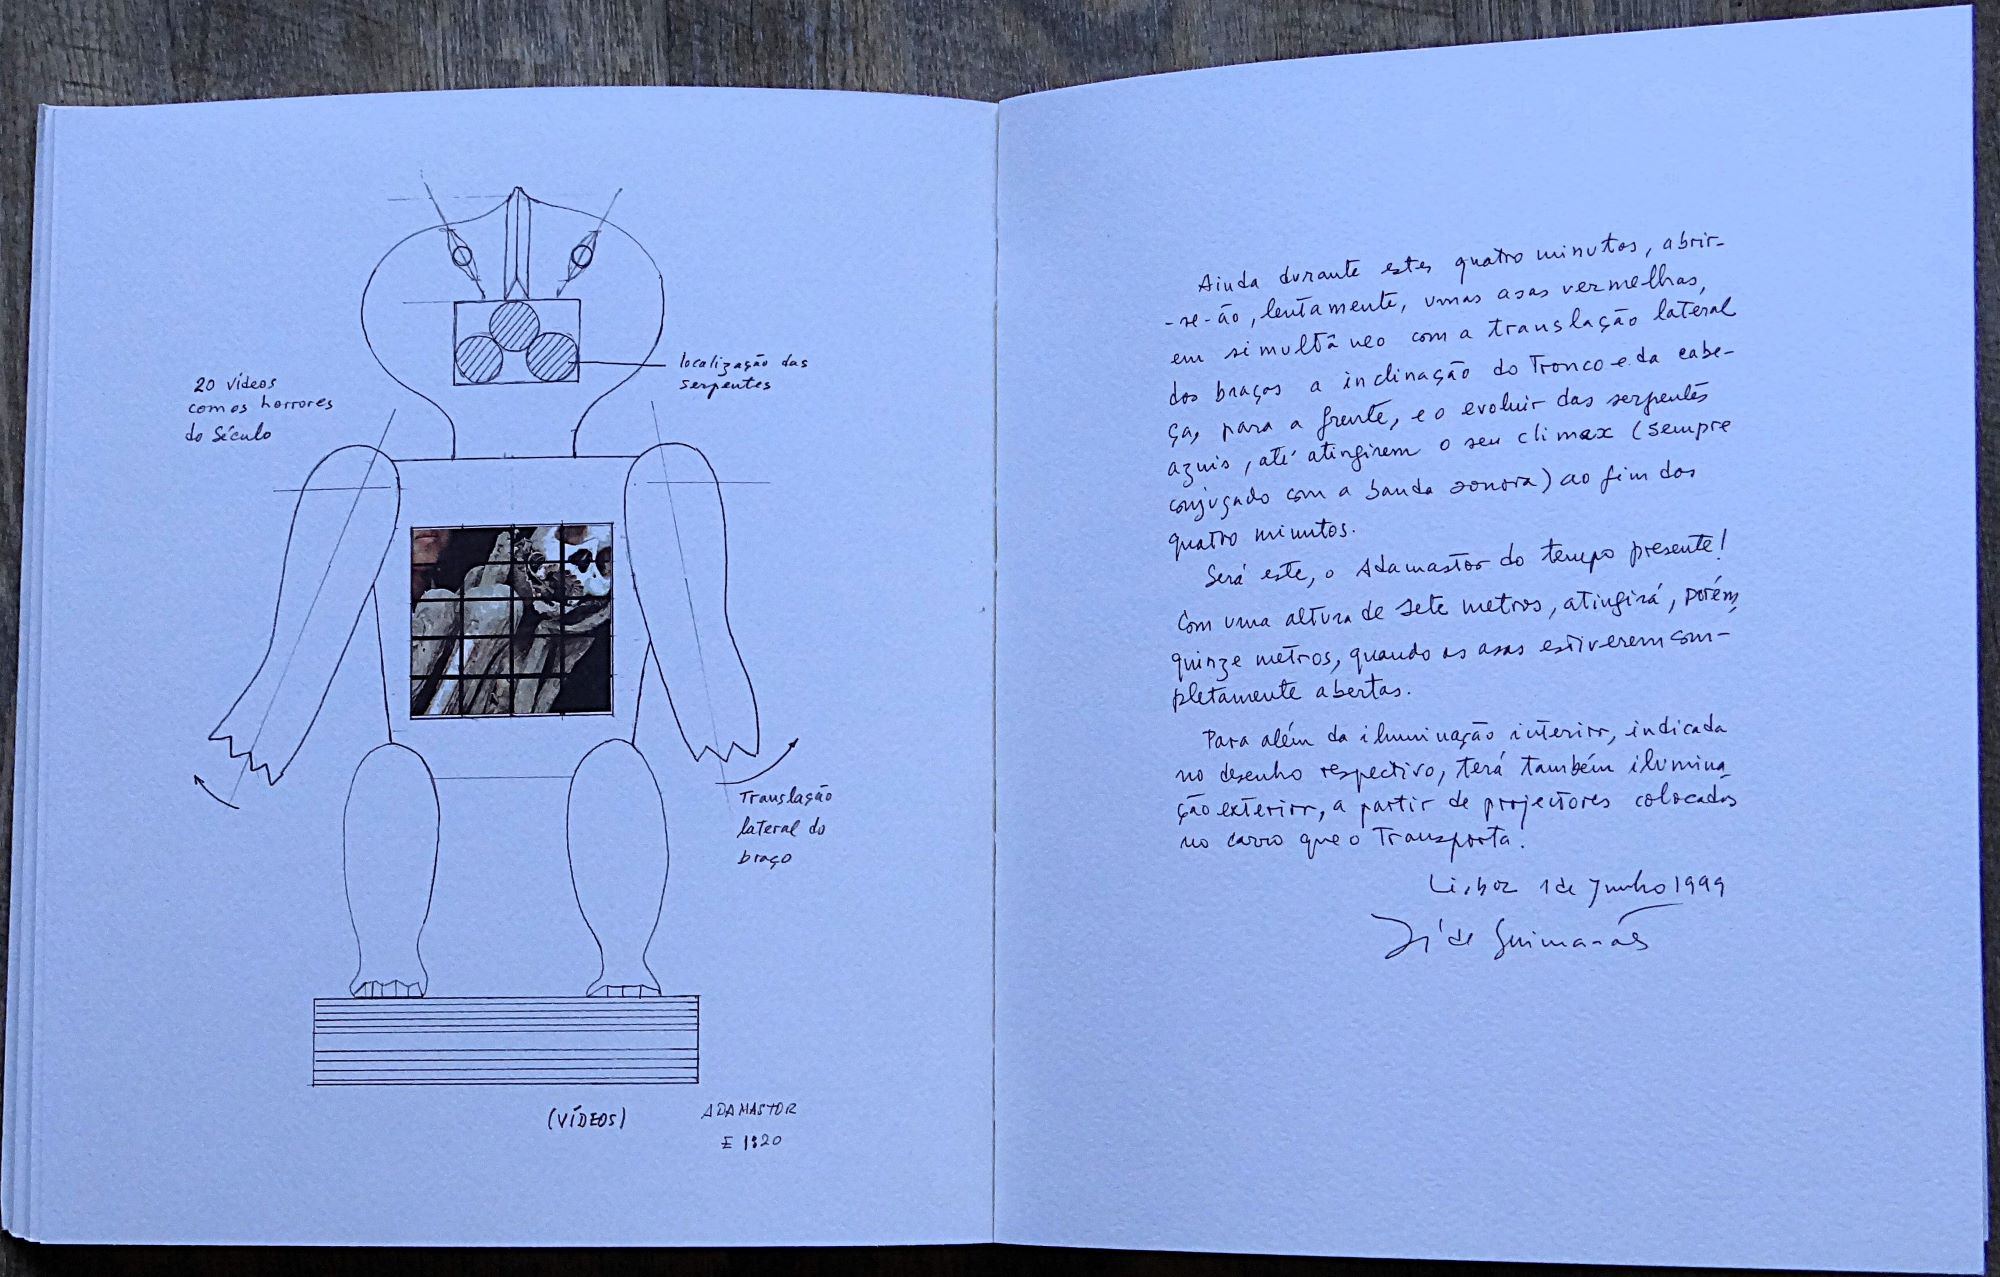 20 vídeos
com os horrores
do Século
localização das
serpentes
Translação
lateral do
braço
(VÍDEOS)
ADAMASTOR
E 1:20
Ainda durante estes quatro minutos, abrir-
-se-ão, lentamente, umas asas vermelhas,
em simultâneo com a translação lateral
dos braços a inclinação do Tronco e da cabe-
ça, para a frente, e o evoluir das serpentes
azuis, até atingirem o seu climax (sempre
conjugado com a banda sonora) ao fim dos
quatro minutos.
Será este, o Adamastor do tempo presente!
Com uma altura de sete metros, atingirá, porém,
quinze metros, quando as asas estiverem com-
pletamente abertas.
Para além da iluminação interior, indicada
no desenho respectivo, terá também ilumina
ção exterior, a partir de projectores colocados
no carro que o Transporta.
Lisboa 1 de Junho 1999
José de Guimarães